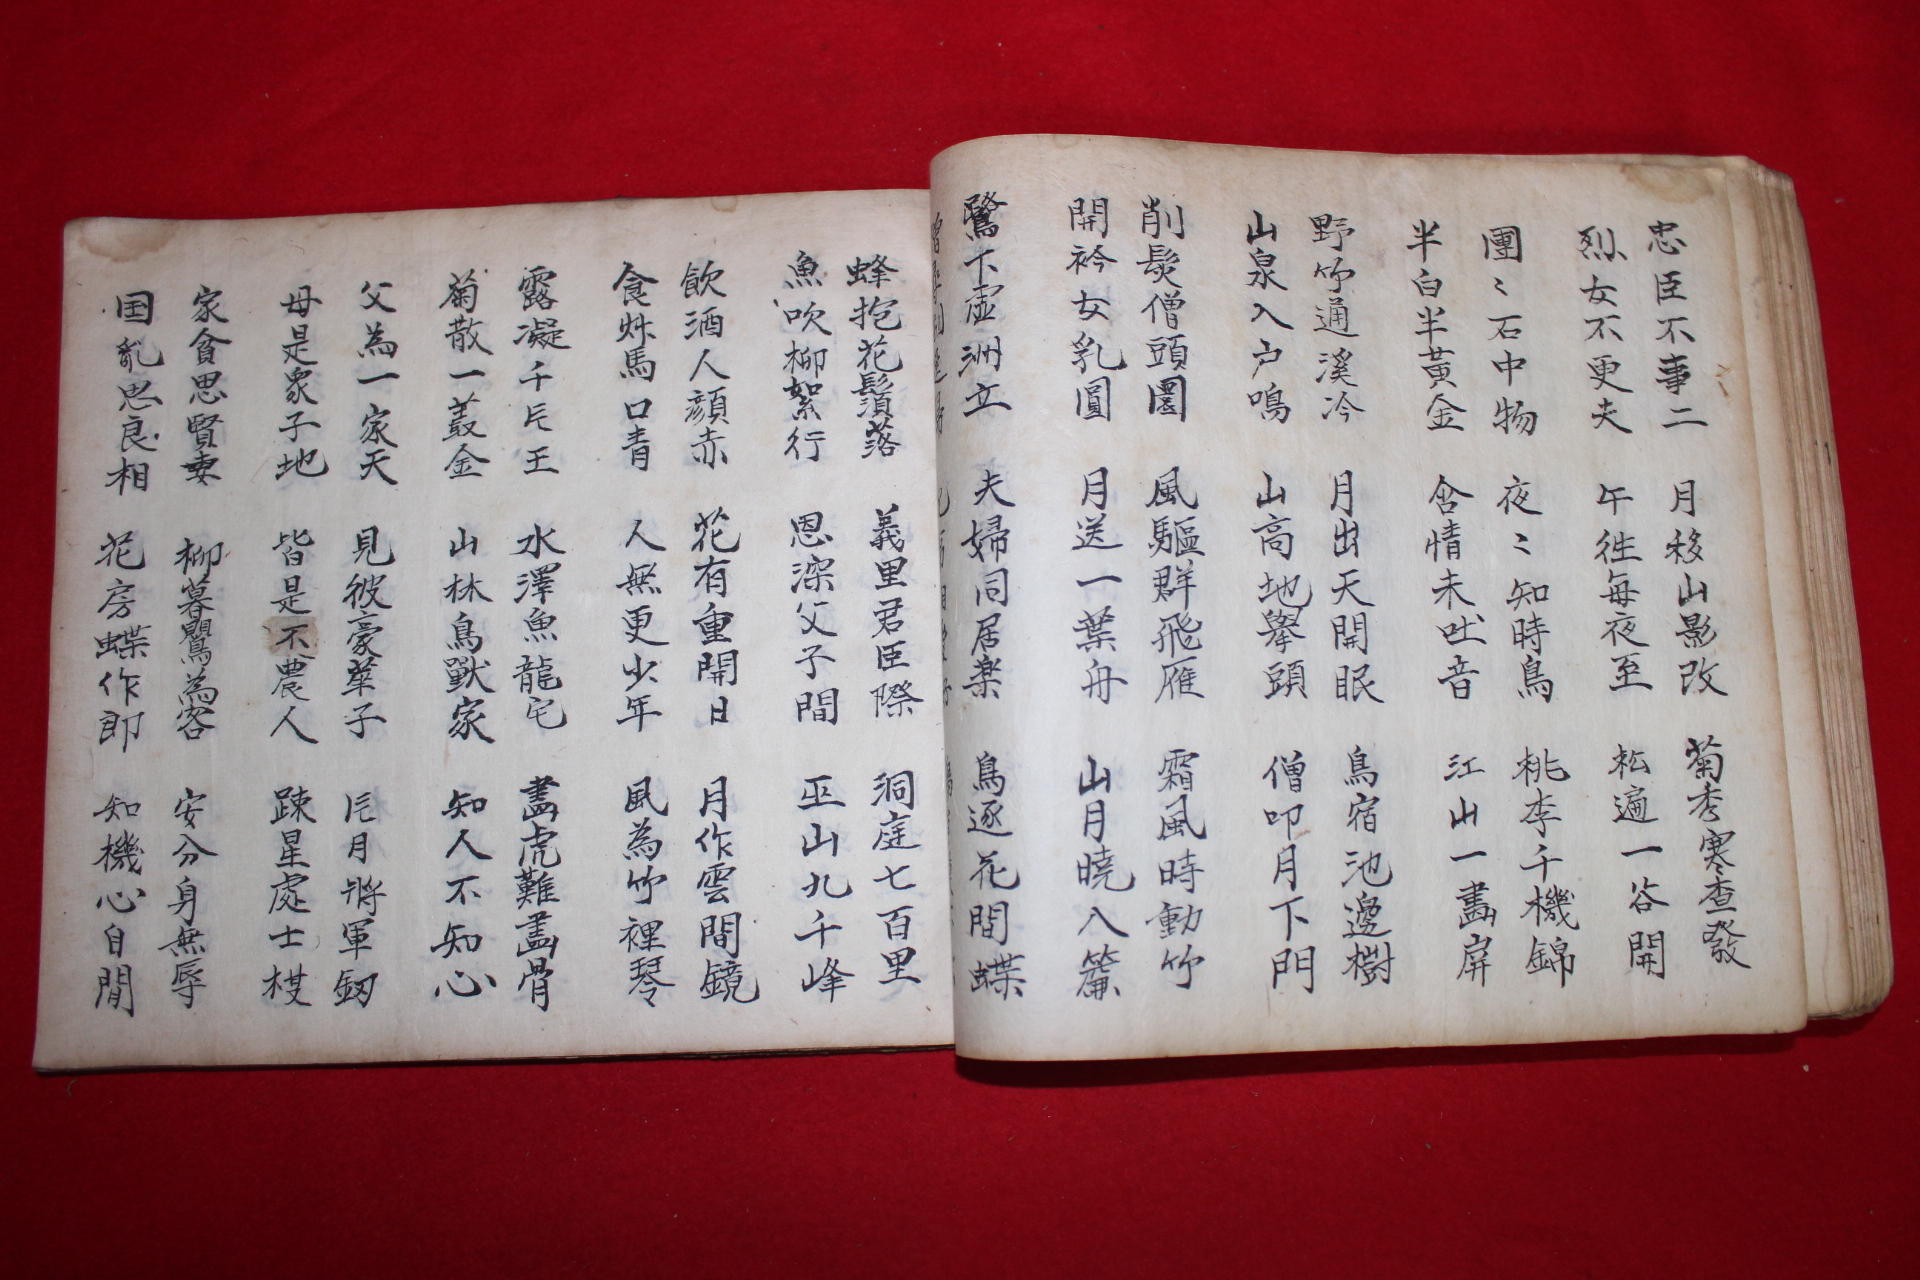 忠臣不事二 月移山影改 菊秀寒査發
烈女不更夫 午徃每夜至 松遍一谷開
團〻石中物 夜〻知時鳥 桃李千機錦
半白半黃金 含情未吐音 江山一畵屏
野竹通溪冷 月出天開眼 鳥宿池邊樹
山泉入户鳴 山高地擧頭 僧叩月下門
削髮僧頭圏 風驅群飛雁 霜風時動竹
開衿女乳圓 月送一葉舟 山月曉入簾
鷺下虛洲立 夫婦同居楽 鳥逐花間蝶
蜂抱花鬚落 義里君臣際 洞庭七百里
魚吹柳絮行 恩深父子間 巫山九千峰
飮酒人顔赤 花有重開日 月作雲間鏡
食艸馬口青 人無更少年 風為竹裡琴
露凝千片玉 水澤魚龍宅 畵虎難畵骨
菊散一叢金 山林鳥獸家 知人不知心
父為一家天 見彼豪華子 片月將軍釼
母是衆子地 皆是不農人 踈星處士棋
家貧思賢妻 柳暮鸎為客 安分身無辱
国亂思良相 花房蝶作郎 知機心自閒